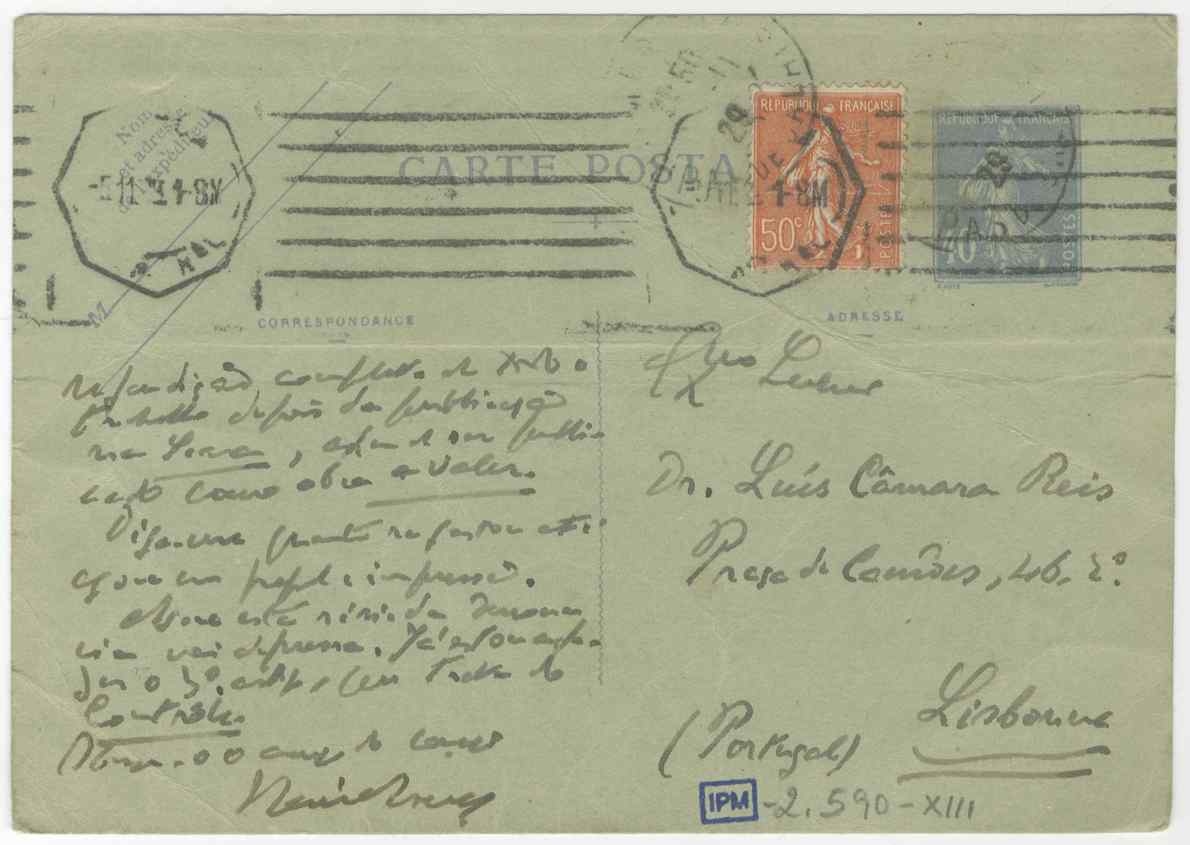 Nom
et adresse
de l'expéditeur
M
CARTE POSTA
RÉPUBLIQUE FRANÇAISE
50c
POSTES
RÉPUBLIQUE FRANÇAISE
40c
POSTES
1-8M
1-8M
29
CORRESPONDANCE
ADRESSE
refundição completa de todo o
trabalho depois da publicação
na Seara, afim de ser publi-
cado como obra a valer.
Diga-me quanto se gastou até
agora em papel e impressão.
Agora esta série da Democra-
cia vai depressa. Já estou a
o 5º. artigo, em
Contrôle.
Exmo Senhor
Dr. Luís Câmara Reis
Praça de Camões, 46, 2º.
Lisbonne
(Portugal)
IPM -2.590-XIII